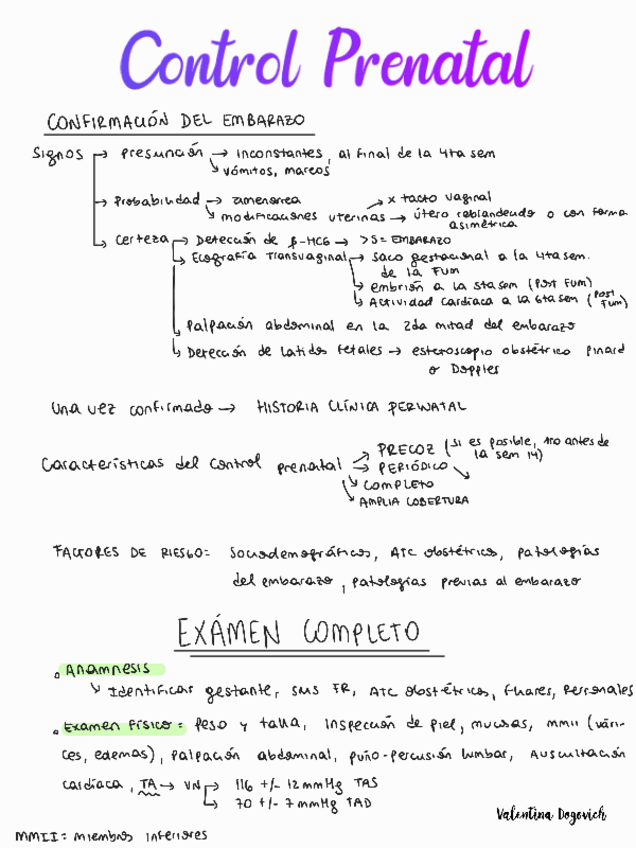 Control Prenatal
CONFIRMACIÓN DEL EMBARAZO
Signos → Presunción → inconstantes, al final de la 4ta sem
↳ vómitos, mareos
→ Probabilidad → amenorrea → x tacto vaginal
↳ modificaciones uterinas → útero reblandecido o con forma
asimétrica
↳ Certeza → Detección de β-HCG → >5 = EMBARAZO
↳ Ecografía Transvaginal → saco gestacional a la 4ta sem.
de la FUM
↳ embrión a la 5ta sem (Post FUM)
↳ Actividad cardíaca a la 6ta sem (Post FUM)
↳ Palpación abdominal en la 2da mitad del embarazo
↳ Detección de latidos fetales → estetoscopio obstétrico Pinard
o Doppler
Una vez confirmado → HISTORIA CLÍNICA PERINATAL
Características del control prenatal → PRECOZ (si es posible, 1ro antes de
la sem 14)
→ PERIÓDICO ↘
↳ COMPLETO
↳ AMPLIA COBERTURA
FACTORES DE RIESGO = Sociodemográficos, ATC obstétricos, patologías
del embarazo, patologías previas al embarazo
EXÁMEN COMPLETO
• Anamnesis
↳ Identificar gestante, sus FR, ATC obstétricos, fliares, personales
• Examen físico = peso y talla, inspección de piel, mucosas, mmii (vári-
ces, edemas), palpación abdominal, puño-percusión lumbar, auscultación
cardíaca, TA → VN → 116 +/- 12 mmHg TAS
↳ 70 +/- 7 mmHg TAD
Valentina Dogovich
MMII = miembros inferiores